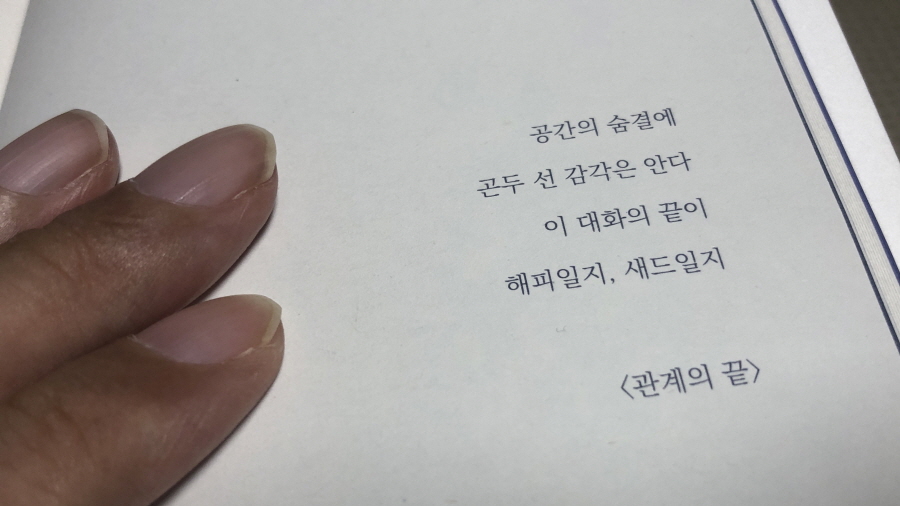 공간의 숨결에
곤두 선 감각은 안다
이 대화의 끝이
해피일지, 새드일지
〈관계의 끝〉